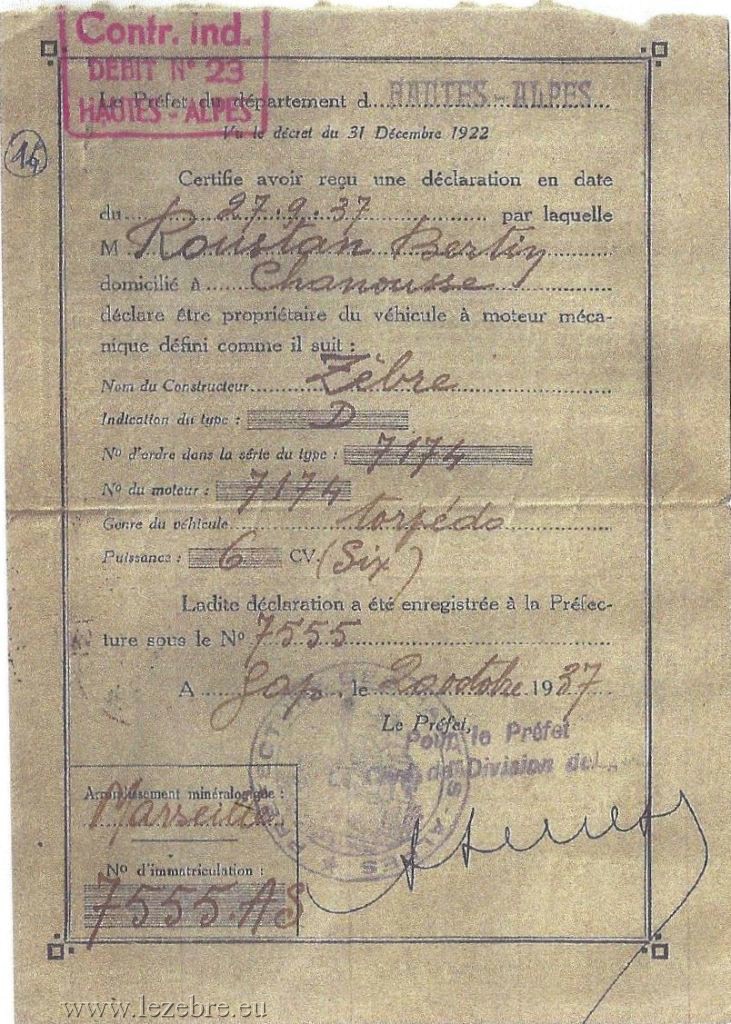 Contr. ind.
DEBIT N° 23
HAUTES-ALPES
Le Préfet du département d HAUTES-ALPES
Vu le décret du 31 Décembre 1922
14
Certifie avoir reçu une déclaration en date
du 27.9.37 par laquelle
M Roustan Bertin
domicilié à Chanousse
déclare être propriétaire du véhicule à moteur méca-
nique défini comme il suit :
Nom du Constructeur Zèbre
Indication du type : D
N° d'ordre dans la série du type : 7174
N° du moteur : 7174
Genre du véhicule torpédo
Puissance : 6 CV. (Six)
Ladite déclaration a été enregistrée à la Préfec-
ture sous le N° 7555
A Gap, le 2 octobre 1937
Le Préfet,
Pour le Préfet
Le Chef de Division del.
Arrondissement minéralogique :
Marseille
N° d'immatriculation :
7555.AS
www.lezebre.eu